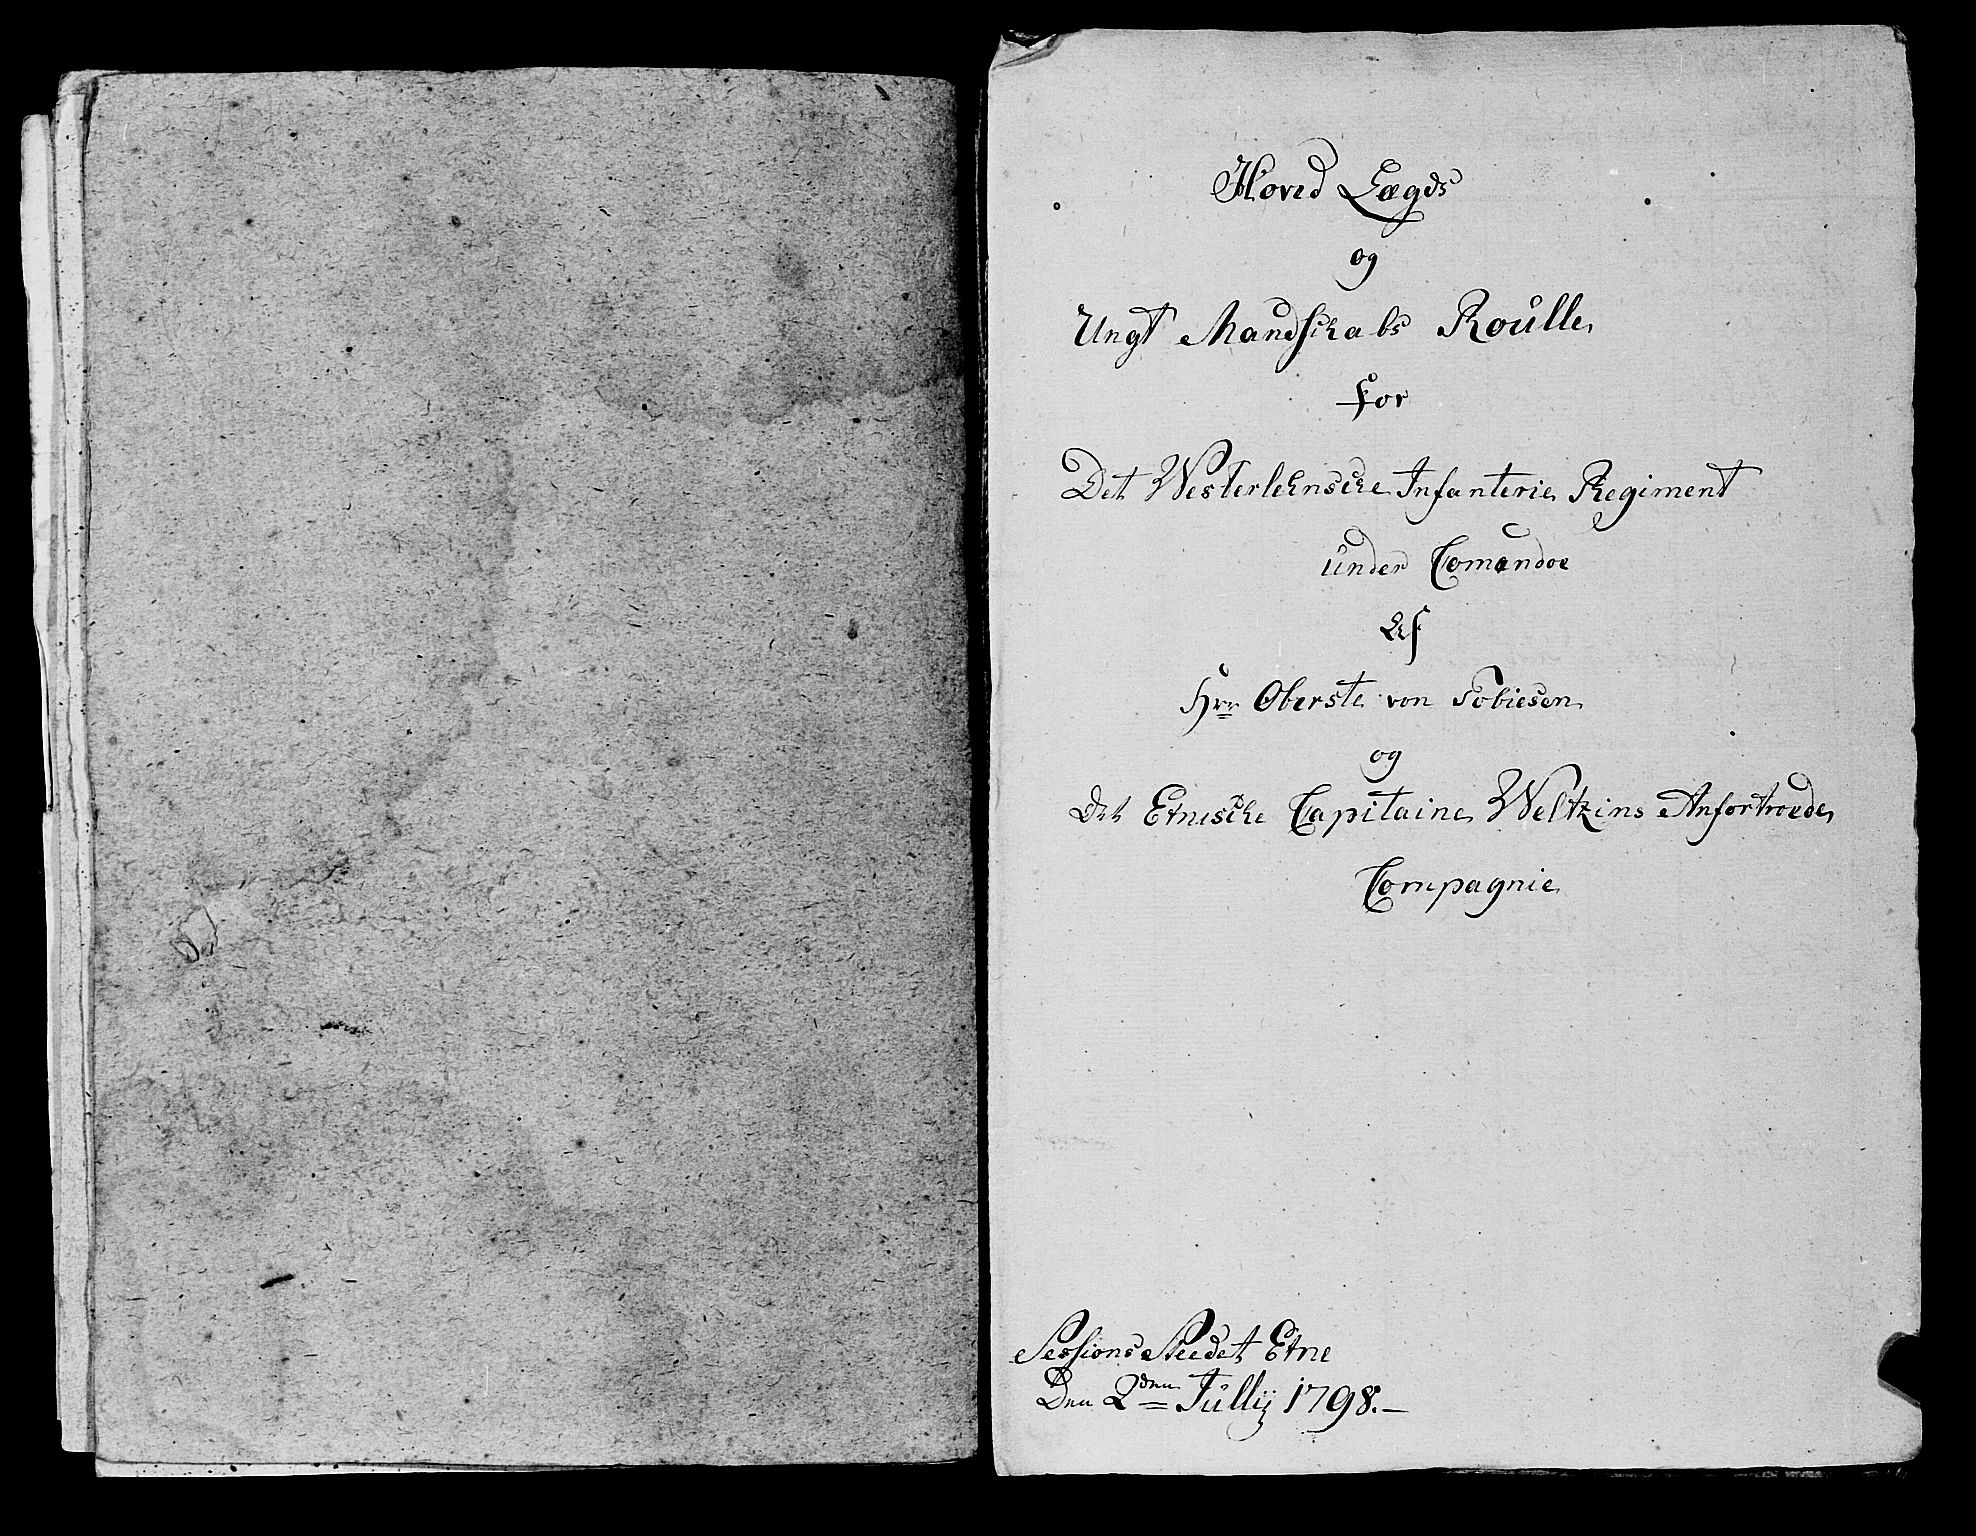 Hoved Lægds
og
Ungt Mandskabs Roulle
for
Det Westerlehnsche Infanterie Regiment
under Comandoe
Af
Hrr Oberste von Tobiesen
og
Det Etnesche Capitaine Weltzins Anfortroede
Compagnie
Sessions Steedet Etne
Den 2den Júllij 1798.-